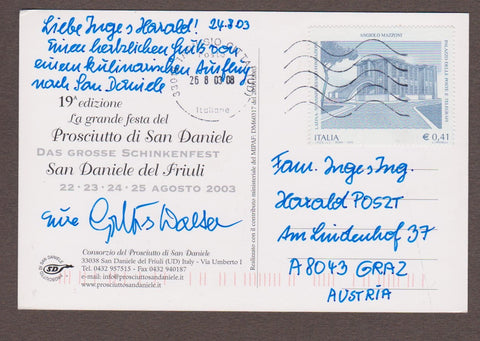 Liebe Inge, Harald! 24.8.03
Einen herzlichen Gruß von
einem kulinarischen Ausflug
nach San Daniele
19ª edizione
La grande festa del
Prosciutto di San Daniele
DAS GROSSE SCHINKENFEST
San Daniele del Friuli
22 - 23 - 24 - 25 AGOSTO 2003
Eure
Consorzio del Prosciutto di San Daniele
33038 San Daniele del Friuli (UD) Italy - Via Umberto I
Tel. 0432 957515 - Fax 0432 940187
e-mail: info@prosciuttosandaniele.it
www.prosciuttosandaniele.it
SD
26 8 03
Italiane
ANGIOLO MAZZONI
PALAZZO DELLE POSTE E TELEGRAFI
LATINA
ITALIA
€ 0,41
Fam. Inge, Ing.
Harald POSZT
Am Lindenhof 37
A 8043 GRAZ
AUSTRIA